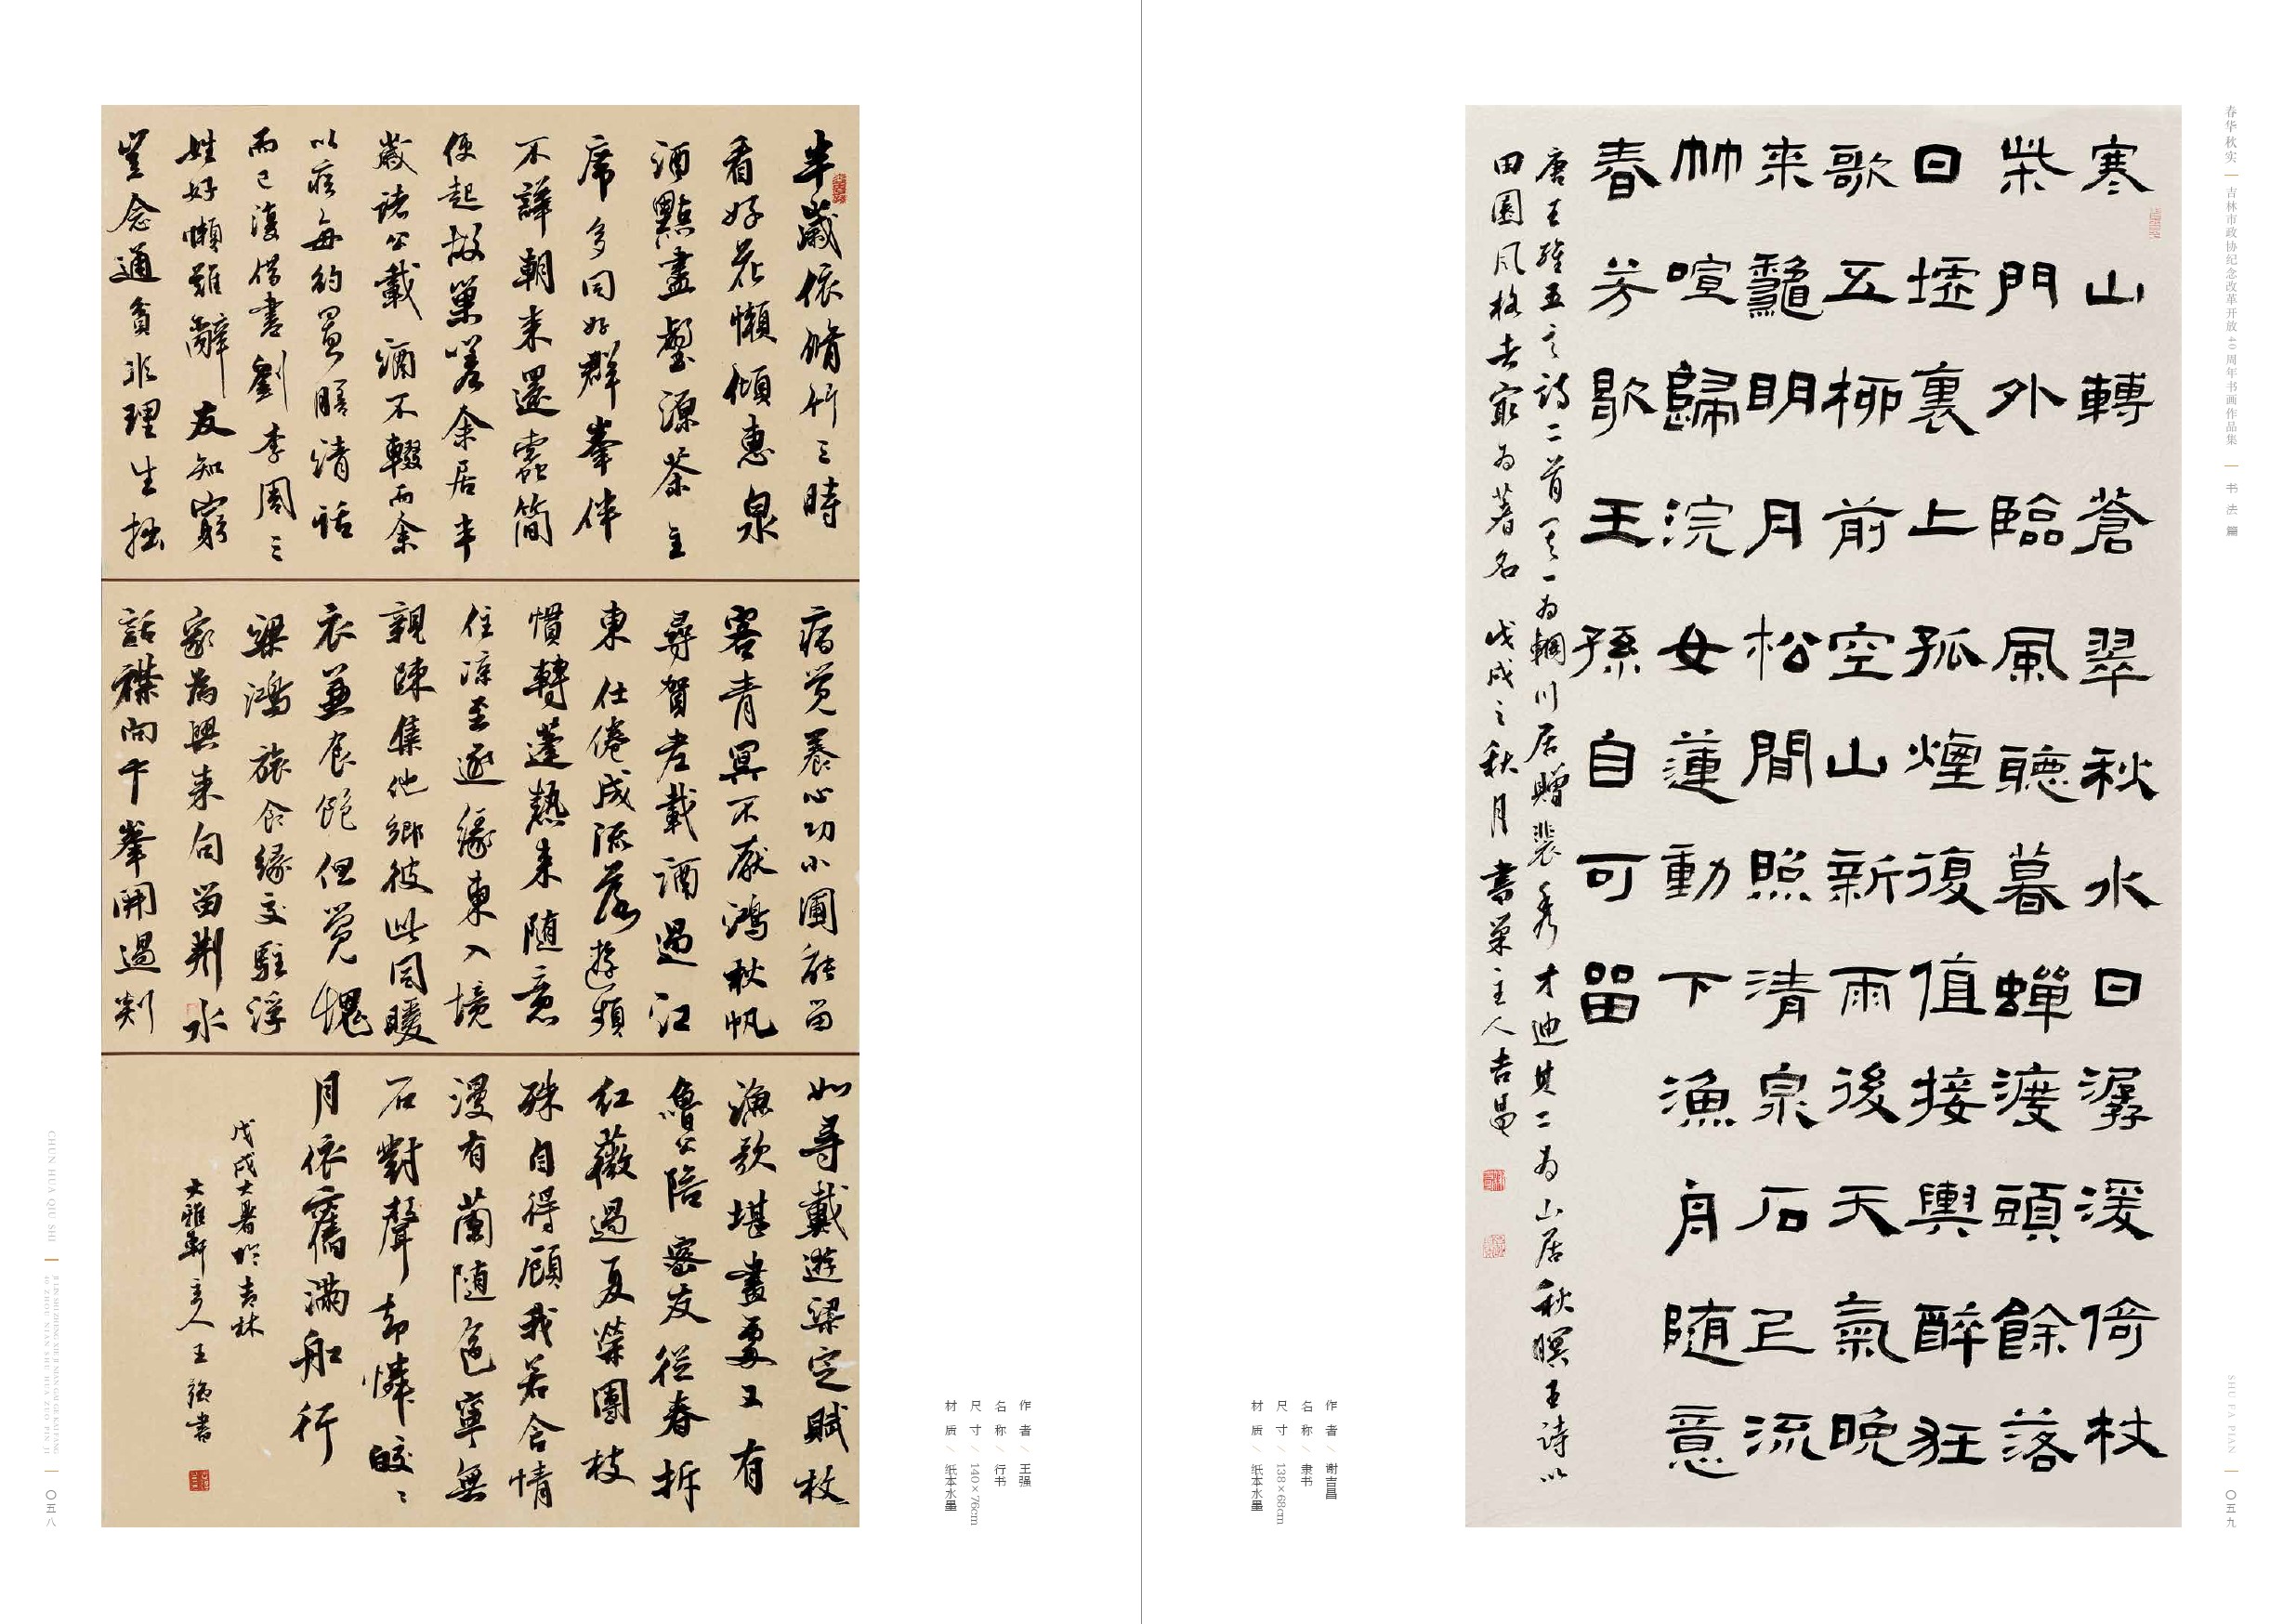 半歲依脩竹三時
看好花懶傾惠泉
酒點盡壑源茶主
席多同好群峯伴
不譁朝來還蠹簡
便起故巢嗟余居半
歲諸公載酒不輟而余
以疾每約置膳清話
而已復借書劉李周三
姓好懶難辭友知窮
豈念通貧非理生拙
病覺養心功小圃能留
客青冥不厭鴻秋帆
尋賀老載酒過江
東仕倦成流落遊頻
慣轉蓬熱來隨意
住涼至逐緣東入境
親踈集他鄉彼此同暖
衣兼食飽但覺愧
梁鴻旅食緣交駐浮
家為興來句留荆水
話襟向卞峯開過剡
如尋戴遊梁定賦枚
漁歌堪畫處又有
魯公陪密友從春拆
紅薇過夏榮團枝
殊自得顧我若含情
漫有蘭隨色寧無
石對聲却憐皎々
月依舊滿舡行
戊戌大暑於吉林
大雅軒主人王強書
作者／王强
名称／行书
尺寸／140×76cm
材质／纸本水墨
CHUN HUA QIU SHI
JI LIN SHI ZHENG XIE JI NIAN GAI GE KAI FANG
40 ZHOU NIAN SHU HUA ZUO PIN JI
〇五八
春华秋实
吉林市政协纪念改革开放40周年书画作品集
书法篇
寒山轉蒼翠秋水日潺湲倚杖
柴門外臨風聽暮蟬渡頭餘落
日墟裏上孤煙復值接輿醉狂
歌五柳前空山新雨後天氣晚
来龝明月松間照清泉石上流
竹喧歸浣女蓮動下漁舟随意
春芳歇王孫自可留
唐王維五言詩二首其一為輞川居贈裴秀才迪其二為山居秋暝王詩以
田園風格者最為著名 戊戌之秋月書巢主人吉昌
作者／谢吉昌
名称／隶书
尺寸／138×68cm
材质／纸本水墨
SHU FA PIAN
〇五九